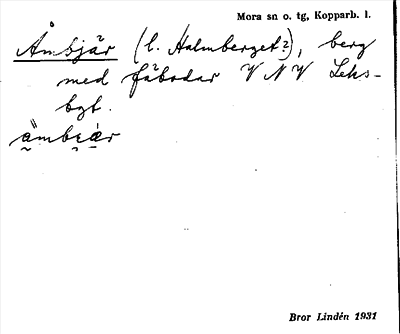 Mora sn o. tg, Kopparb. l.
Åmbjär (l. Halmberget?), berg
med fäbodar V N V Leks-
bgt.
Bror Lindén 1931